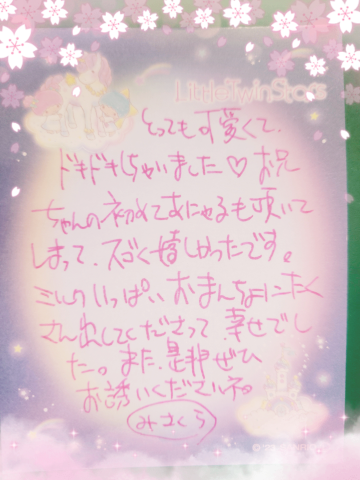 LittleTwinStars
とっても可愛くて、
ドキドキしちゃいました♡お兄
ちゃんの初めてあにゃるも頂いて
しまって、スゴく嬉しかったです。
ミルクいっぱい、おまんちょにたく
さん出してくださって幸せでし
た。また、是非ぜひ
お誘いくださいネ。
みさくら